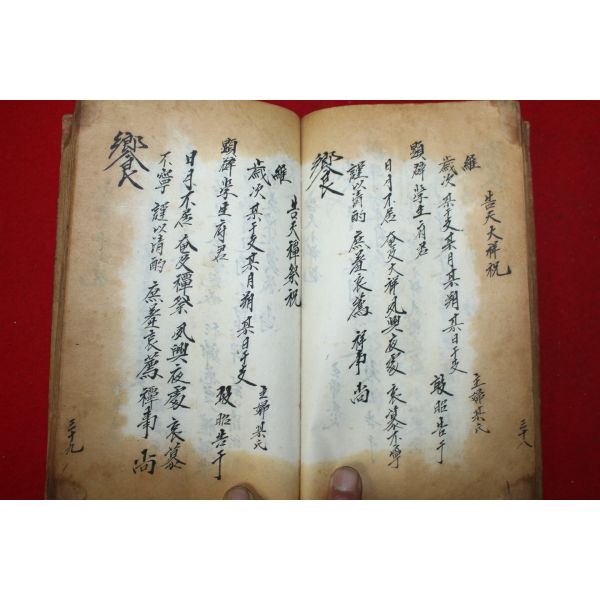 告天大祥祝
維
歲次某干支某月某朔某日干支 主婦某氏 敢昭告于
顯辟學生府君
日月不居 奄及大祥 夙興夜處 哀慕不寧
謹以清酌 庶羞哀薦 祥事 尚
饗
三十八
告天禫祭祝
維
歲次某干支某月朔某日干支 主婦某氏 敢昭告于
顯辟學生府君
日月不居 奄及禫祭 夙興夜處 哀慕
不寧 謹以清酌 庶羞哀薦 禫事 尚
饗
三十九